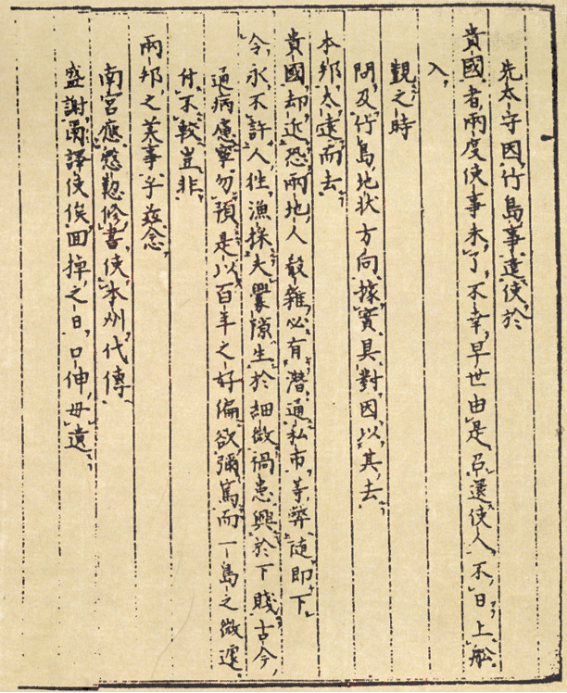 先太守因竹島事遣使於
貴國者兩度使事未了不幸早世由是召還使人不日上船
入
覲之時
問及竹島地状方向據實具對因以其去
本邦太遠而去
貴國却近恐兩地人殽雜必有潜通私市等弊随即下
令永不許人徃漁採夫釁隙生於細微禍患興於下賤古今
通病慮寧勿預是以百年之好偏欲彌篤而一島之微遽
付不較豈非
兩邦之美事乎茲念
南宮應慇懃修書使本州代傳
盛謝爾譯使俟回掉之日口伸毋遺